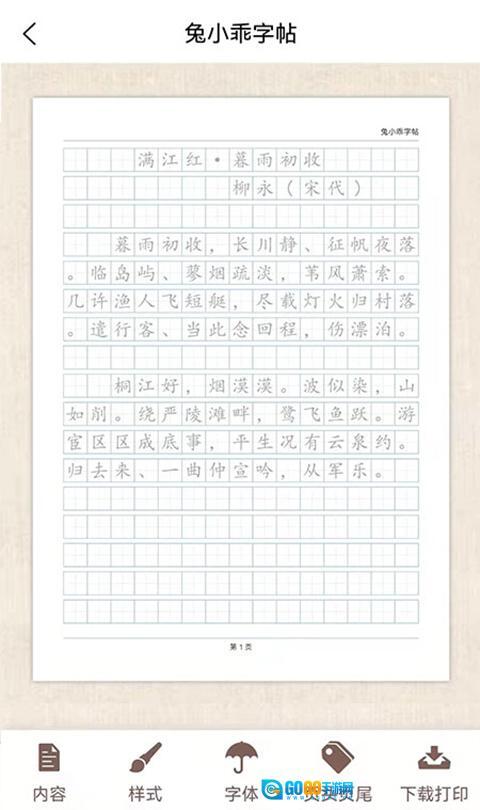 兔小乖字帖
兔小乖字帖
满江红·暮雨初收
柳永（宋代）
暮雨初收，长川静、征帆夜落
。临岛屿、蓼烟疏淡，苇风萧索。
几许渔人飞短艇，尽载灯火归村落
。遣行客、当此念回程，伤漂泊。
桐江好，烟漠漠。波似染，山
如削。绕严陵滩畔，鹭飞鱼跃。游
宦区区成底事，平生况有云泉约。
归去来、一曲仲宣吟，从军乐。
第 1 页
内容 样式 字体 页尾 下载打印
GO 手游网